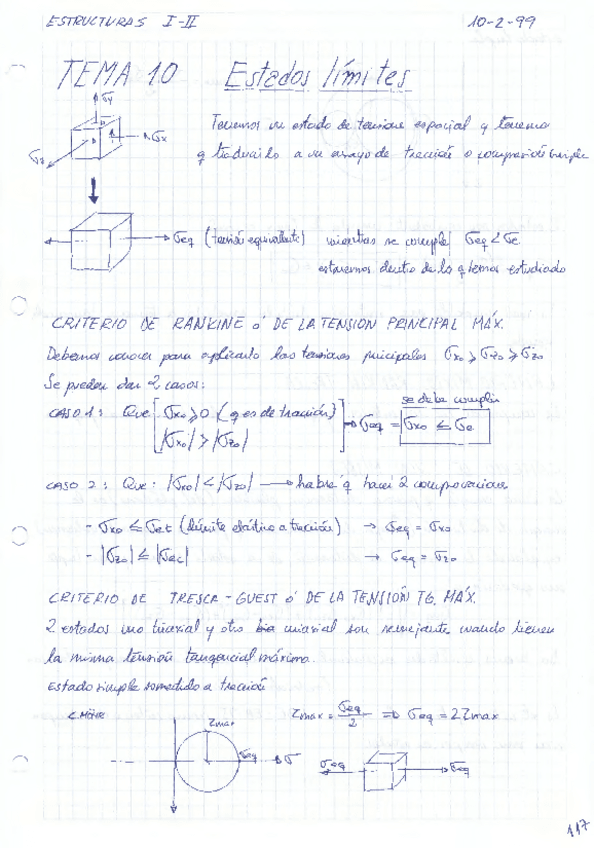 ESTRUCTURAS I-II 10-2-99
TEMA 10 Estados límites
σy
Tenemos un estado de tensiones espacial y tenemos
σx
σz
q traducirlo a un ensayo de tracción o compresión simple
σeq (tensión equivalente) mientras se cumple σeq < σe
estaremos dentro de lo q hemos estudiado
CRITERIO DE RANKINE ó DE LA TENSION PRINCIPAL MÁX.
Debemos conocer para aplicarlo las tensiones principales σxo ⩾ σyo ⩾ σzo
Se pueden dar 2 casos:
se debe cumplir
CASO 1: Que [σxo ⩾ 0 (q es de tracción) |σxo| > |σzo|] → σeq = σxo ≤ σe
CASO 2: Que: |σxo| < |σzo| → habrá q hacer 2 comprovaciones
- σxo ≤ σet (límite elástico a tracción) → σeq = σxo
- |σzo| ≤ |σec| → σeq = σzo
CRITERIO DE TRESCA - GUEST ó DE LA TENSIÓN TG. MÁX.
2 estados uno triaxial y otro uniaxial son semejantes cuando tienen
la misma tensión tangencial máxima.
Estado simple sometido a tracción
C. MÖHR τmax τmax = σeq/2 ⇒ σeq = 2τmax
σeq σ σeq σeq
117